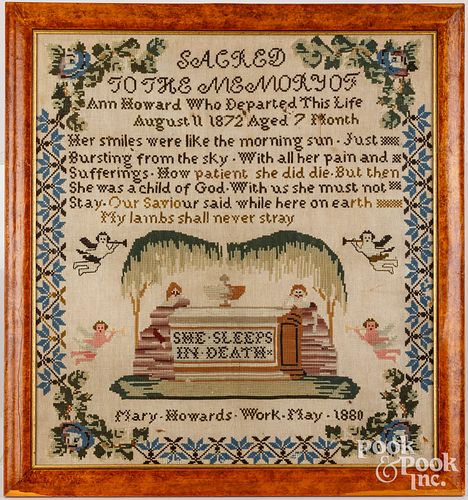 SACRED
TO THE MEMORY OF
Ann Howard Who Departed This Life
August 11 1872 Aged 7 Month
Her smiles were like the morning sun · Just
Bursting from the sky · With all her pain and
Sufferings · How patient she did die · But then
She was a child of God · With us she must not
Stay · Our Saviour said while here on earth
My lambs shall never stray
SHE · SLEEPS
IN · DEATH
Mary · Howards · Work · May · 1880
POOK
& POOK
Inc.